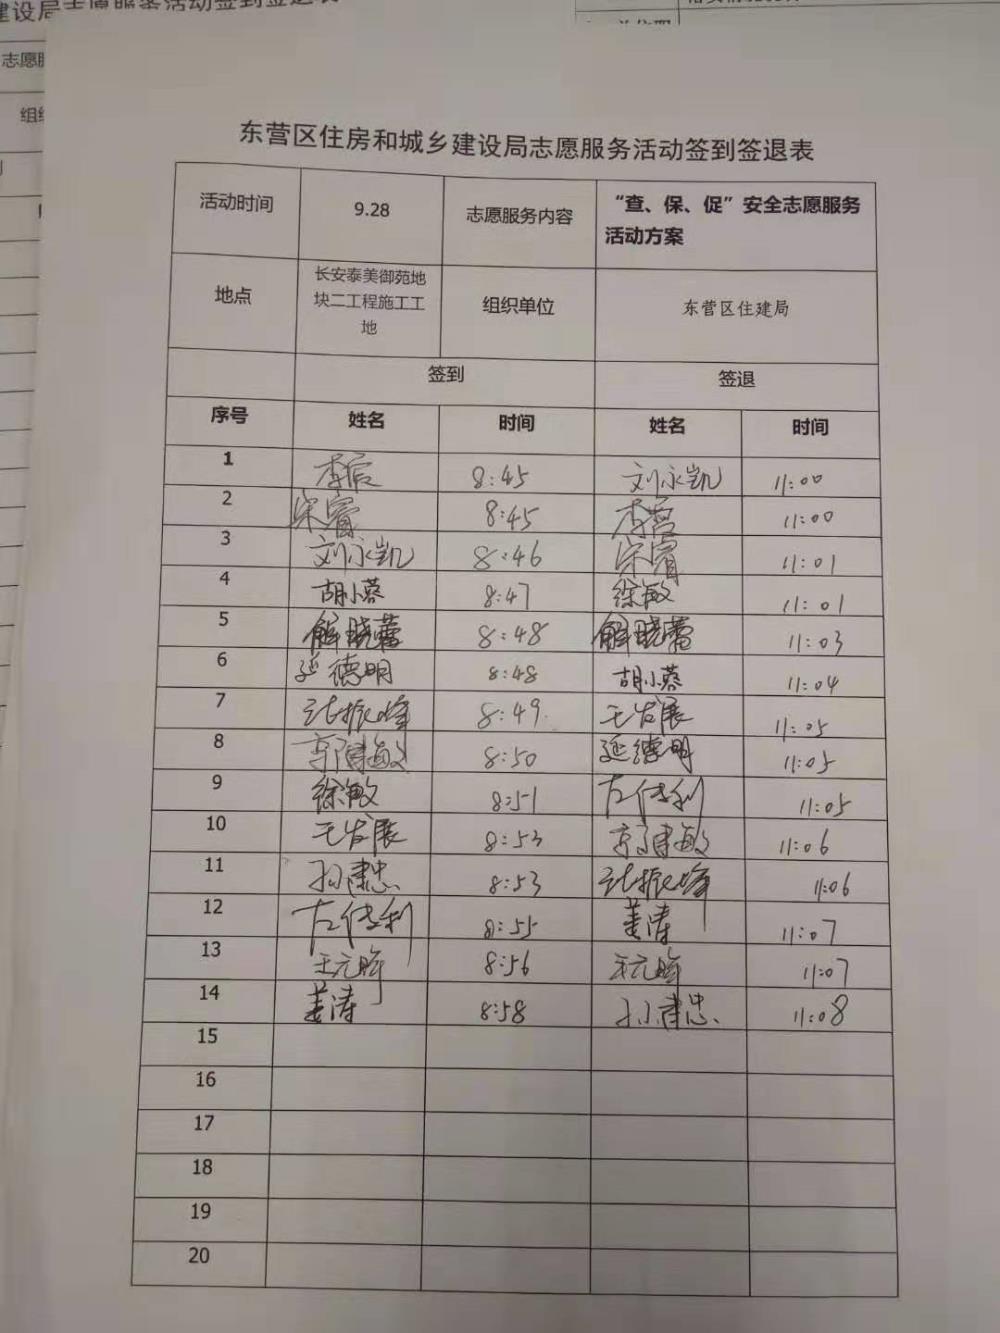 建设局志愿服务活动签到签退表
志愿服
组织
东营区住房和城乡建设局志愿服务活动签到签退表
活动时间 9.28 志愿服务内容 “查、保、促”安全志愿服务
活动方案
地点 长安泰美御苑地
块二工程施工工
地
组织单位 东营区住建局
签到 签退
序号 姓名 时间 姓名 时间
1 8:45 刘永凯 11:00
2 宋睿 8:45 11:00
3 刘永凯 8:46 宋睿 11:01
4 胡小蓉 8:47 徐敏 11:01
5 解晓蕾 8:48 解晓蕾 11:03
6 延德明 8:48 胡小蓉 11:04
7 振峰 8:49 王发展 11:05
8 建敏 8:50 延德明 11:05
9 徐敏 8:51 左传利 11:05
10 王发展 8:53 建敏 11:06
11 孙建忠 8:53 振峰 11:06
12 左传利 8:55 姜涛 11:07
13 王元晖 8:56 王元晖 11:07
14 姜涛 8:58 孙建忠 11:08
15
16
17
18
19
20